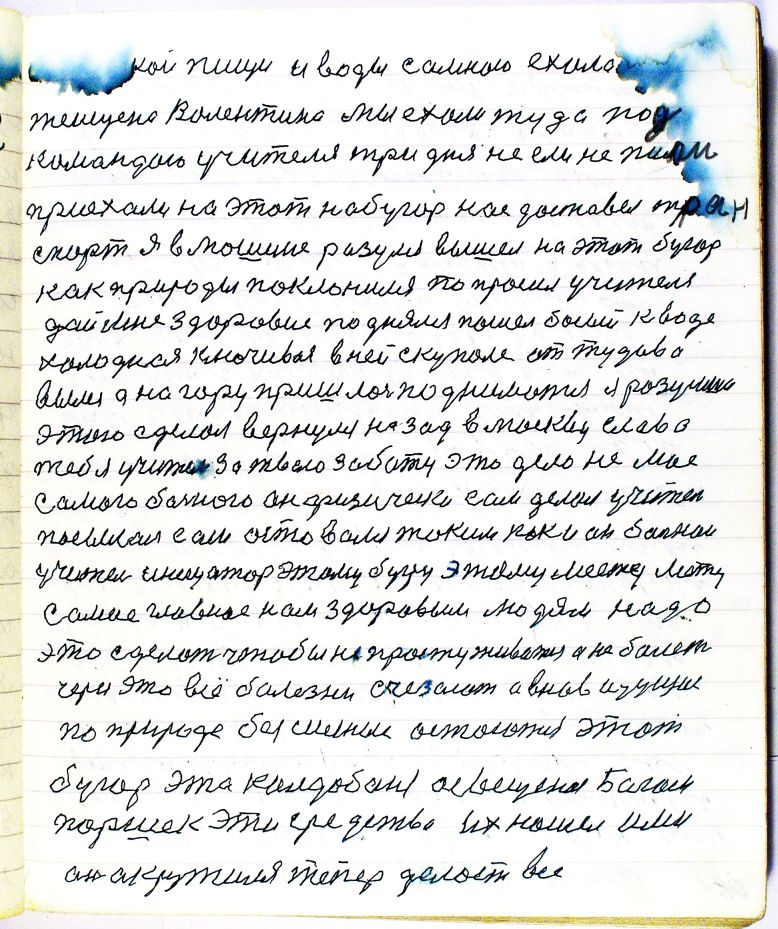 кой пищи и воды самною ехала
женщена Валентина мы ехали туда под
командою учителя три дня не ели не пили
приехали на этот на бугор нас доставел тран
спорт я в мошине разулся вышел на этот бугор
как природы поклонился по просил учителя
дай мне здоровие поднялся пошел босый к воде
холодная ключивая в ней скупался оттудова
вылез а на гору пришлос подниматся я разумши
этого сделал вернулся назад в москву слава
тебя учител за твою заботу это дело не мое
самого боного он физически сам делал учител
посылал сам оставался таким как и он болнои
учител иницатор этому бугру этому месту
самое главное нам здоровым людям надо
это сделат чтобы не простуживатся а не болет
через это всё болезни счезают а внов идущие
по природе безсилные остаются этот
бугор эта калдобаня освещена Багом
поршек эти средства их нашел ими
он окружился тепер делает все